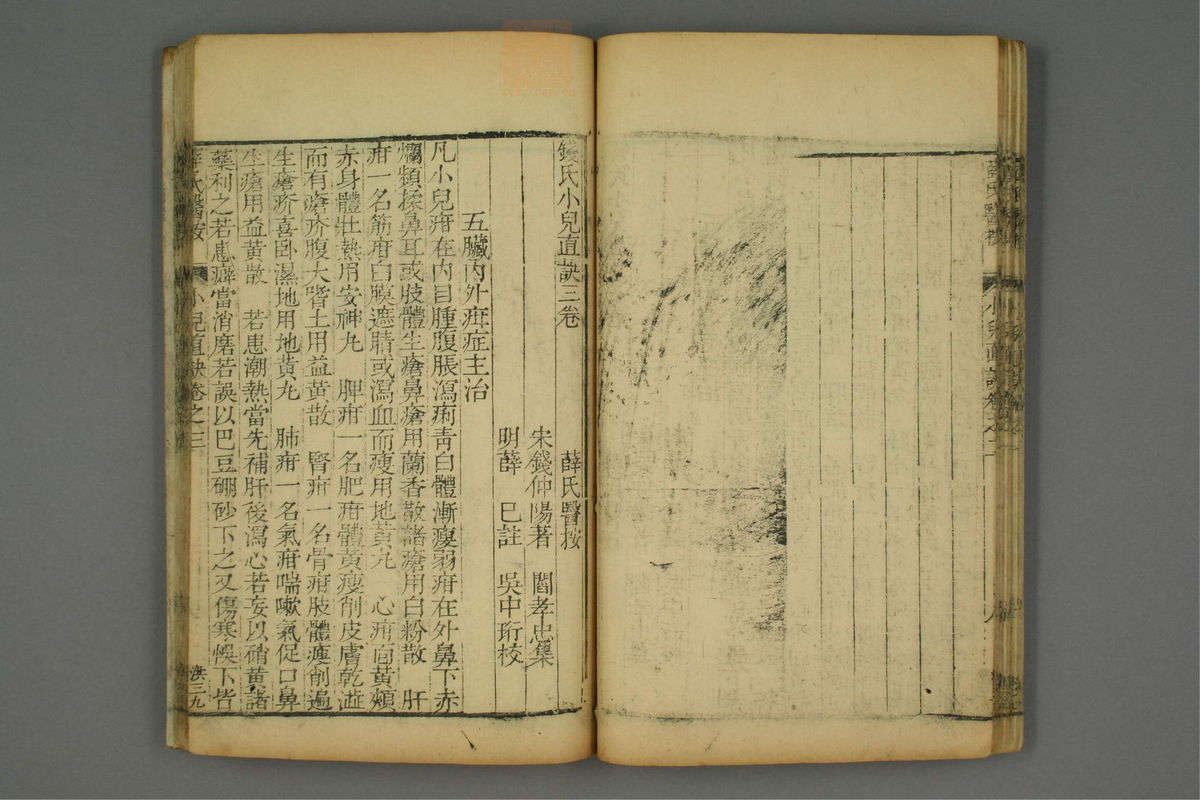 薛氏醫按 小兒直訣卷之二 八
錢氏小兒直訣三卷 薛氏醫按
宋錢仲陽著 閻孝忠集
明薛 巳註 吳中珩校
五臟內外疳症主治
凡小兒疳在內目腫腹脹瀉痢青白體漸瘦弱疳在外鼻下赤
爛頻揉鼻耳或肢體生瘡鼻瘡用蘭香散諸瘡用白粉散 肝
疳一名筋疳白膜遮睛或瀉血而瘦用地黃丸 心疳面黃頰
赤身體壯熱用安神丸 脾疳一名肥疳體黃瘦削皮膚乾澁
而有瘡疥腹大嗜土用益黃散 腎疳一名骨疳肢體瘦削遍
生瘡疥喜卧濕地用地黃丸 肺疳一名氣疳喘嗽氣促口鼻
生瘡用益黃散 若患潮熱當先補肝後瀉心若妄以硝黃諸
藥利之若患癖當消磨若誤以巴豆硼砂下之又傷寒悞下皆
薛氏醫按 小兒直訣卷之三 洪三九